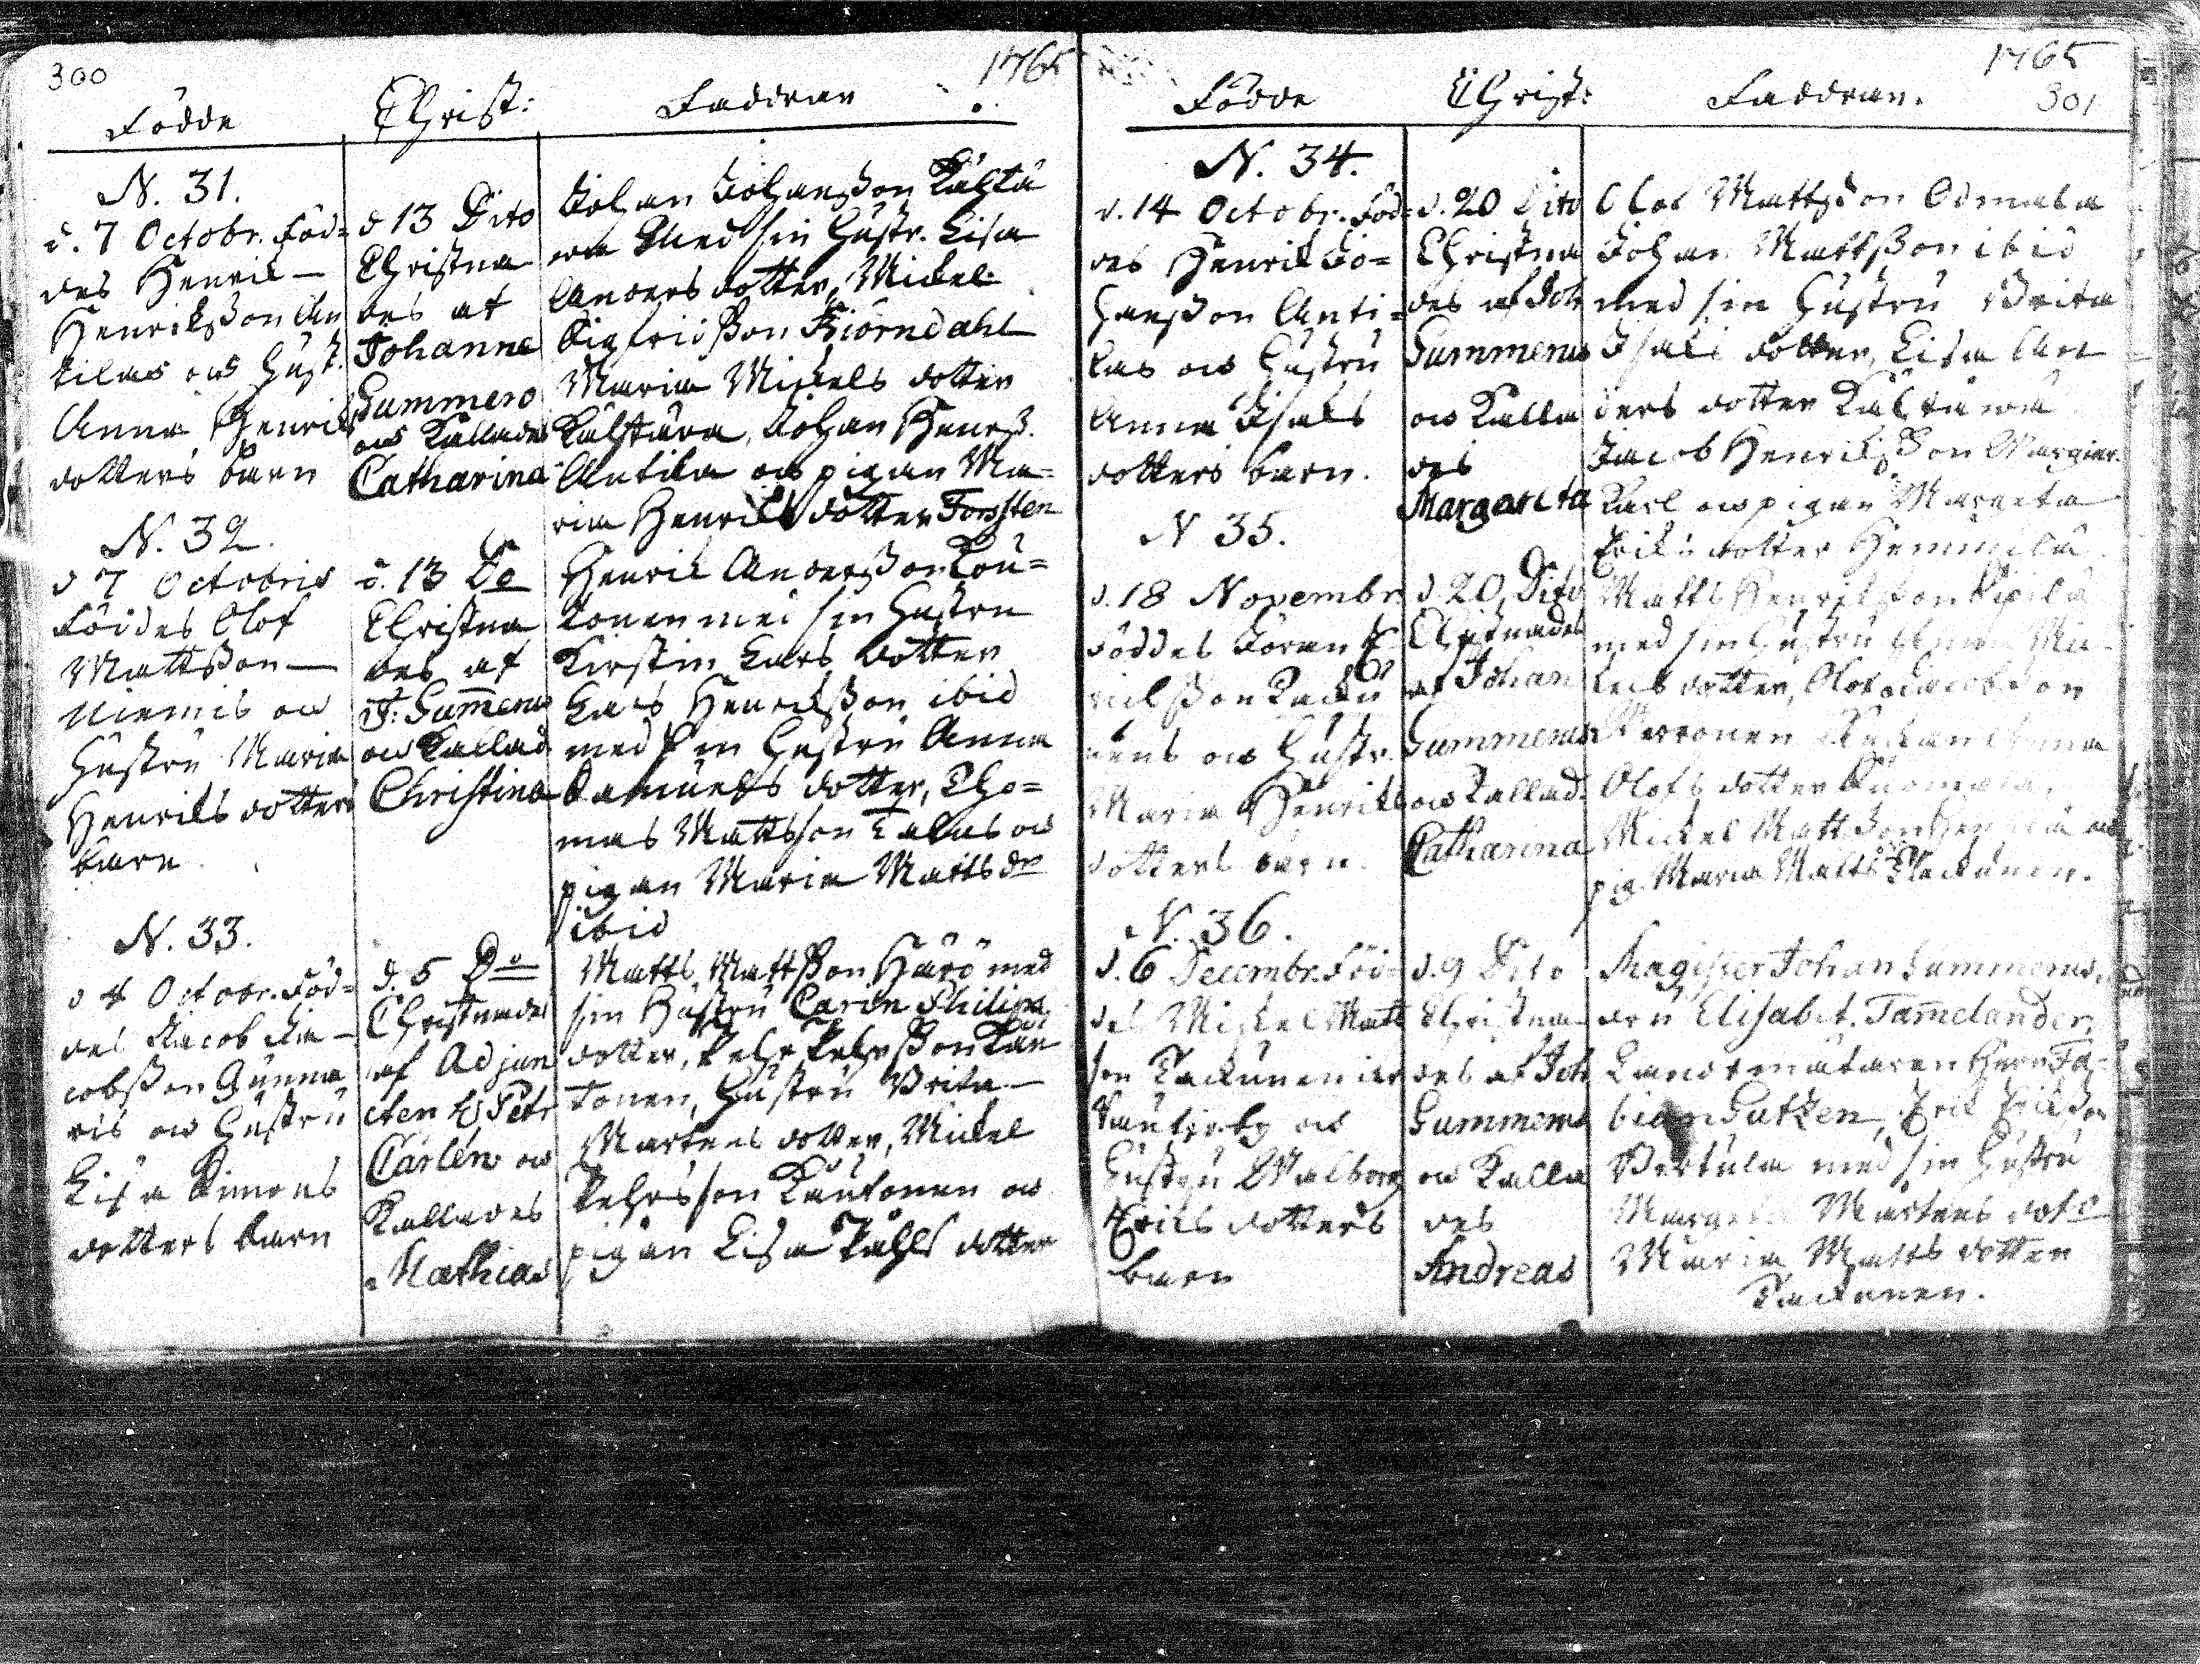 300
1765
Födde
Christ:
Faddran
N. 31.
d. 7 Octobr. föd=
des Henrik
Henriksson An
tilas och Hust.
Anna Henriks
dotters barn
d 13 Dito
Christna
des af
Johanne
Summero
och Kallades
Catharina
Johan Johansson
Med sin Hustr. Lisa
Anders dotter, Mickel
Sigfridsson Biörndahl
Maria Mickels dotter
Johan Henrss.
Antila och pigan Ma=
ria Henriks dotter Forssten
N. 32.
d 7 Octobris
föddes Olof
Mattsson
Niemis och
Hustru Maria
Henriks dotters
barn
d. 13 Do
Christna
des af
J: Sum̄erus
och Kallad
Christina
Henrik Andersson Kou=
konen med sin Hustru
Kirstin Lars dotter
Lars Henriksson ibid
med sin Hustru Anna
Samuels dotter, Tho=
mas Mattsson Talas och
pigan Maria Matts dr
ibid
N. 33.
d 4 Octobr. föd=
des Jacob Ja=
cobsson Gunna
ris och Hustru
Lisa Simons
dotters barn
d. 5 Do
Christnades
af Adjun
cten H Petr
Carlén och
Kallades
Mathias
Matts Mattsson Härö med
sin Hustru Carin Philips
dotter, Pehr Pehrsson Kau
konen, Hustru Brita
Martens dotter, Mickel
Pehrsson Kaukonen och
pigan Lisa Påhls dotter
1765
301
Födde
Christ:
Faddran.
N. 34.
d. 14 Octobr. föd=
des Henrik Jo=
hansson Anti=
las och Hustru
Anna Isaks
dotters barn.
d. 20 Dito
Christna
des af Joh
Summerus
och Kalla
des
Margareta
Olof Mattsson
Johan Mattsson ibid
med sin Hustru Brita
Isaks dotter, Lisa An
ders dotter
Jacob Henriksson
Karl och pigan Margreta
Eriks dotter Hemmilä
N 35.
d. 18 Novembr.
föddes Jöran
riksson
nens och Hustr.
Maria Henriks
dotters barn.
d. 20 Dito
Christnades
af Johan
Summerus
och Kallad.
Catharina
Matts Henriksson
med sin Hustru Anna Mi
kels dotter, Olof Jacobsson
pigan Anna
Olofs dotter
Mickel Mattsson och
pig. Maria Matts Tackunen.
N. 36.
d. 6 Decembr. föd=
des Mickel Matt
son Tackunen ifr
och
Hustru Walborg
Eriks dotters
barn
d. 9 Dito
Christna
des af Joh
Summerus
och Kalla
des
Andreas
Magister Johan Summerus,
Fru Elisabet. Tam̄elander,
Landtmätaren Herr Fa=
bian Gutzen, Erik Eriksson
Pertula med sin Hustru
Margeta Mårtens dotr
Maria Matts dotter
Tackunen.